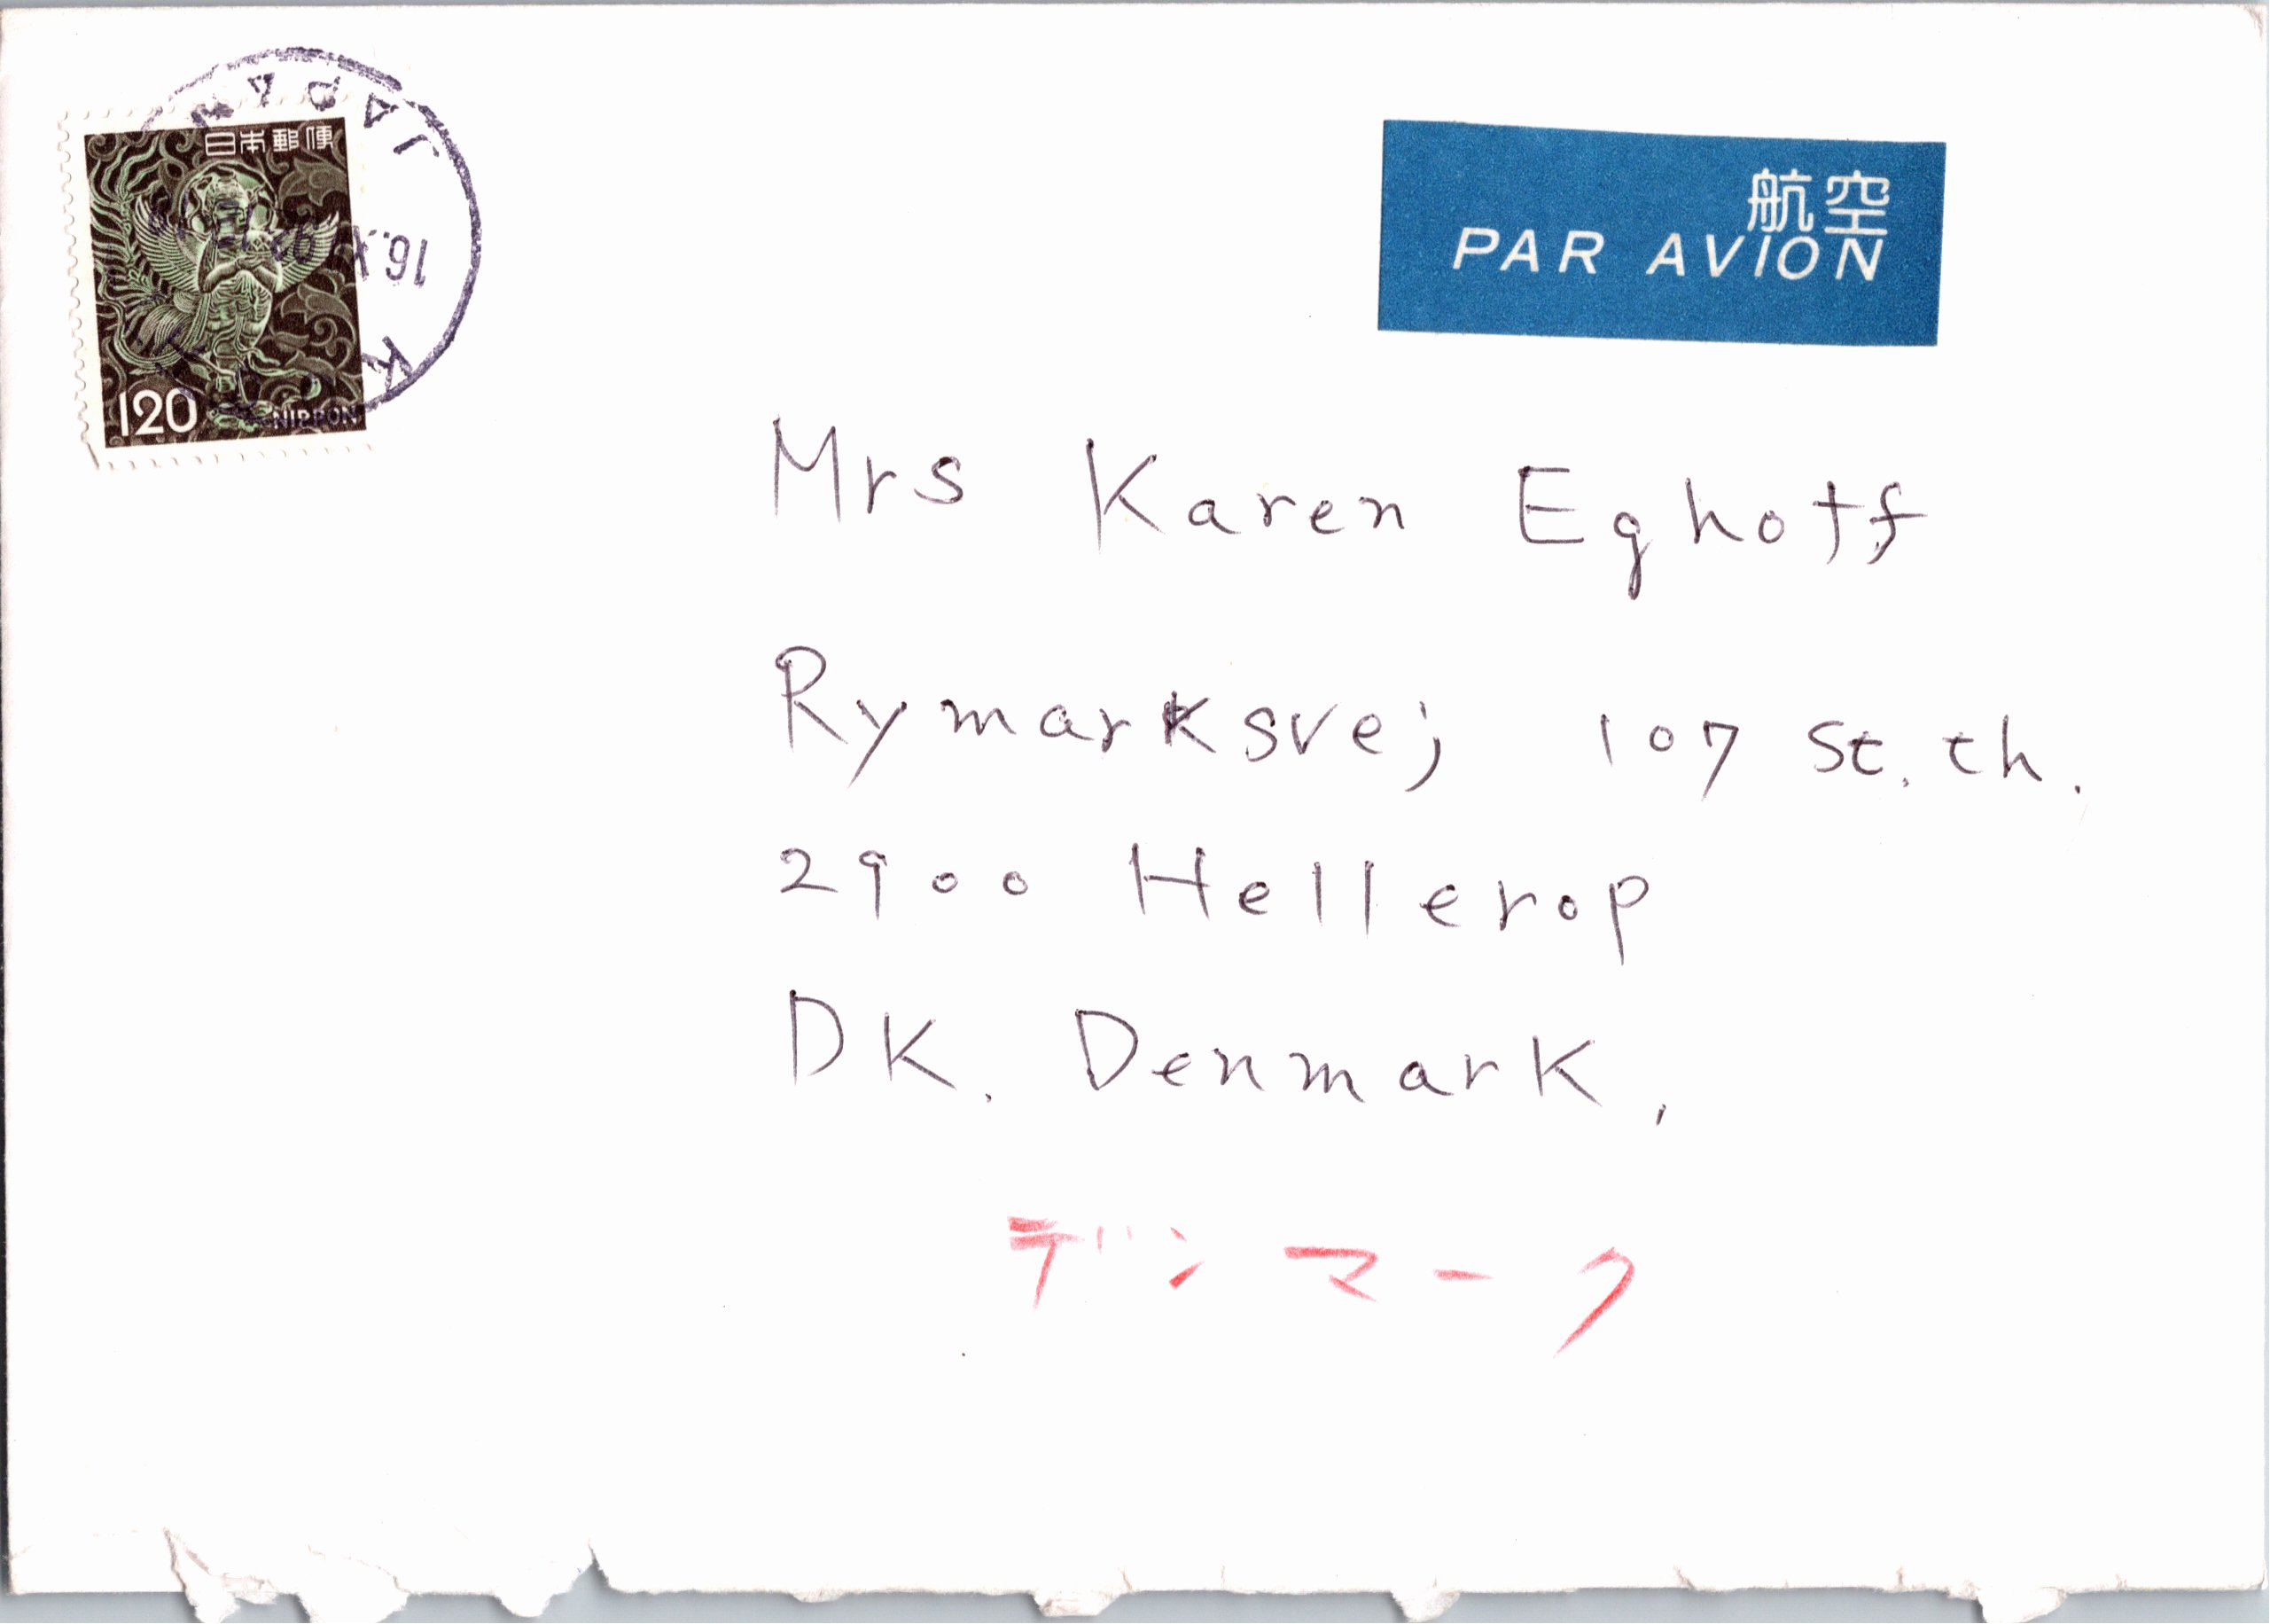 日本郵便
120
NIPPON
JAPAN
航空
PAR AVION
Mrs Karen Eghoff
Rymarksvej 107 St. th.
2900 Hellerop
DK. Denmark,
デンマーク